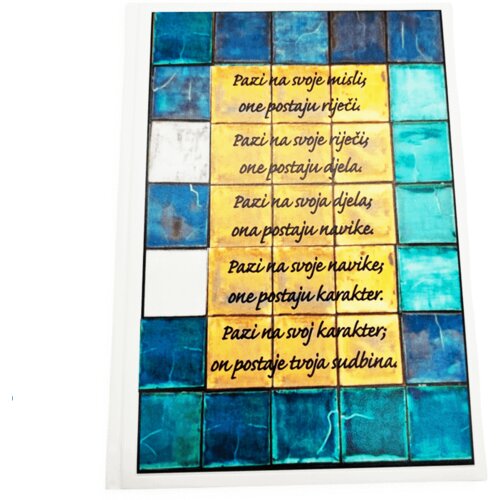 Pazi na svoje misli;
one postaju riječi.
Pazi na svoje riječi;
one postaju djela.
Pazi na svoja djela;
ona postaju navike.
Pazi na svoje navike;
one postaju karakter.
Pazi na svoj karakter;
on postaje tvoja sudbina.